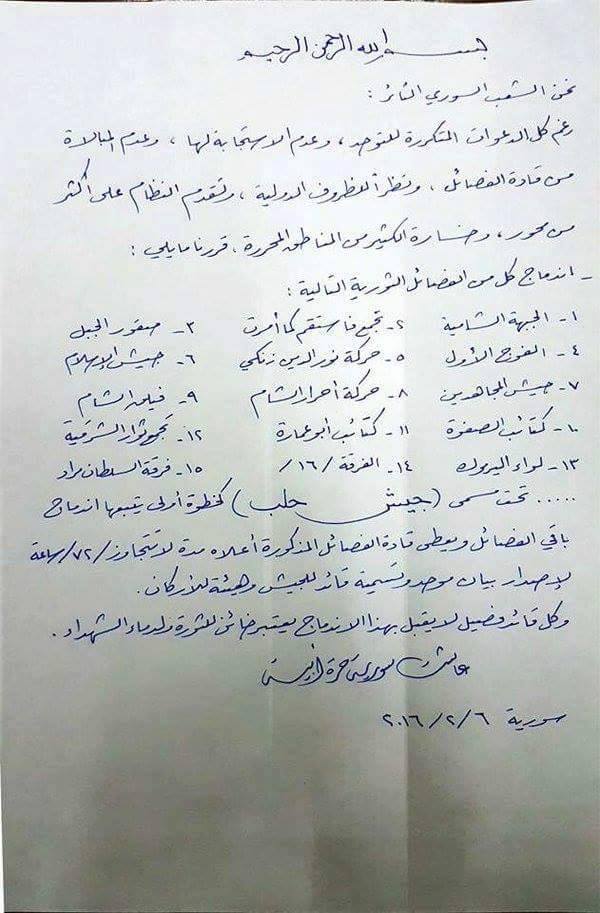 بسم الله الرحمن الرحيم
نحن الشعب السوري الثائر :
رغم كل الدعوات المتكررة للتوحد ، وعدم الاستجابة لها ، وعدم المبالاة
من قادة الفصائل ، ونظراً للظروف الدولية ، وتقدم النظام على أكثر
من محور ، وخسارة الكثير من المناطق المحررة ، قررنا مايلي :
- اندماج كل من الفصائل الثورية التالية :
١- الجبهة الشامية ٢- تجمع فاستقم كما أمرت ٣- صقور الجبل
٤- الفوج الأول ٥- حركة نور الدين زنكي ٦- جيش الإسلام
٧- جيش المجاهدين ٨- حركة أحرار الشام ٩- فيلق الشام
١٠- كتائب الصفوة ١١- كتائب أبو عمارة ١٢- تجمع ثوار الشرقية
١٣- لواء اليرموك ١٤- الفرقة /١٦/ ١٥- فرقة السلطان مراد
..... تحت مسمى ( جيش حلب ) كخطوة أولى يتبعها اندماج
باقي الفصائل ويعطى قادة الفصائل المذكورة أعلاه مدة لا تتجاوز /٧٢/ ساعة
لإصدار بيان موحد وتسمية قائد للجيش وهيئة للأركان .
وكل قائد فصيل لا يقبل بهذا الاندماج يعتبر خائن للثورة ولدماء الشهداء .
عاشت سورية حرة أبية
سورية ٢٠١٦/٢/٦